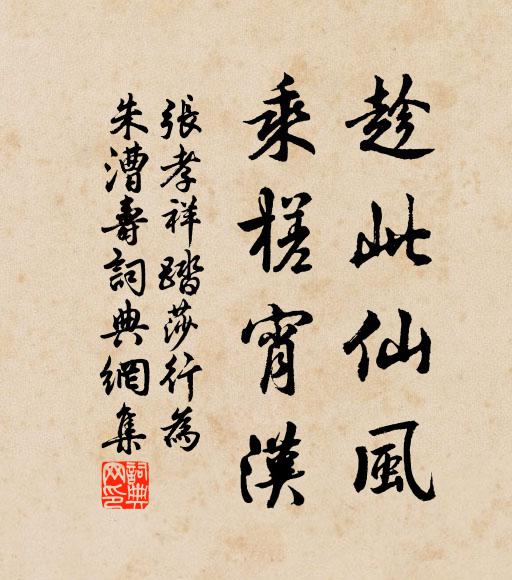 趁此仙風
乘槎宵漢
張孝祥踏莎行為
朱漕壽詞典網集
詞典網印